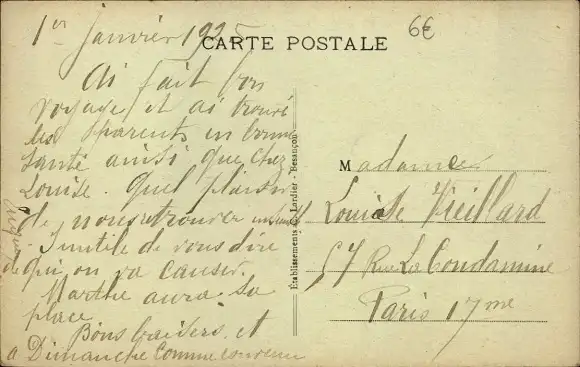 1er Janvier 1925
6€
CARTE POSTALE
Ai fait bon
voyage et ai trouvé
les parents en bonne
santé ainsi que chez
Louise. Quel plaisir
de nous retrouver
Inutile de vous dire
de qui on va causer.
Marthe aura sa
place
Bons baisers et
à Dimanche comme convenu
Etablissements C. Lardier - Besançon
Madame
Louise Vieillard
57 Rue La Condamine
Paris 17me